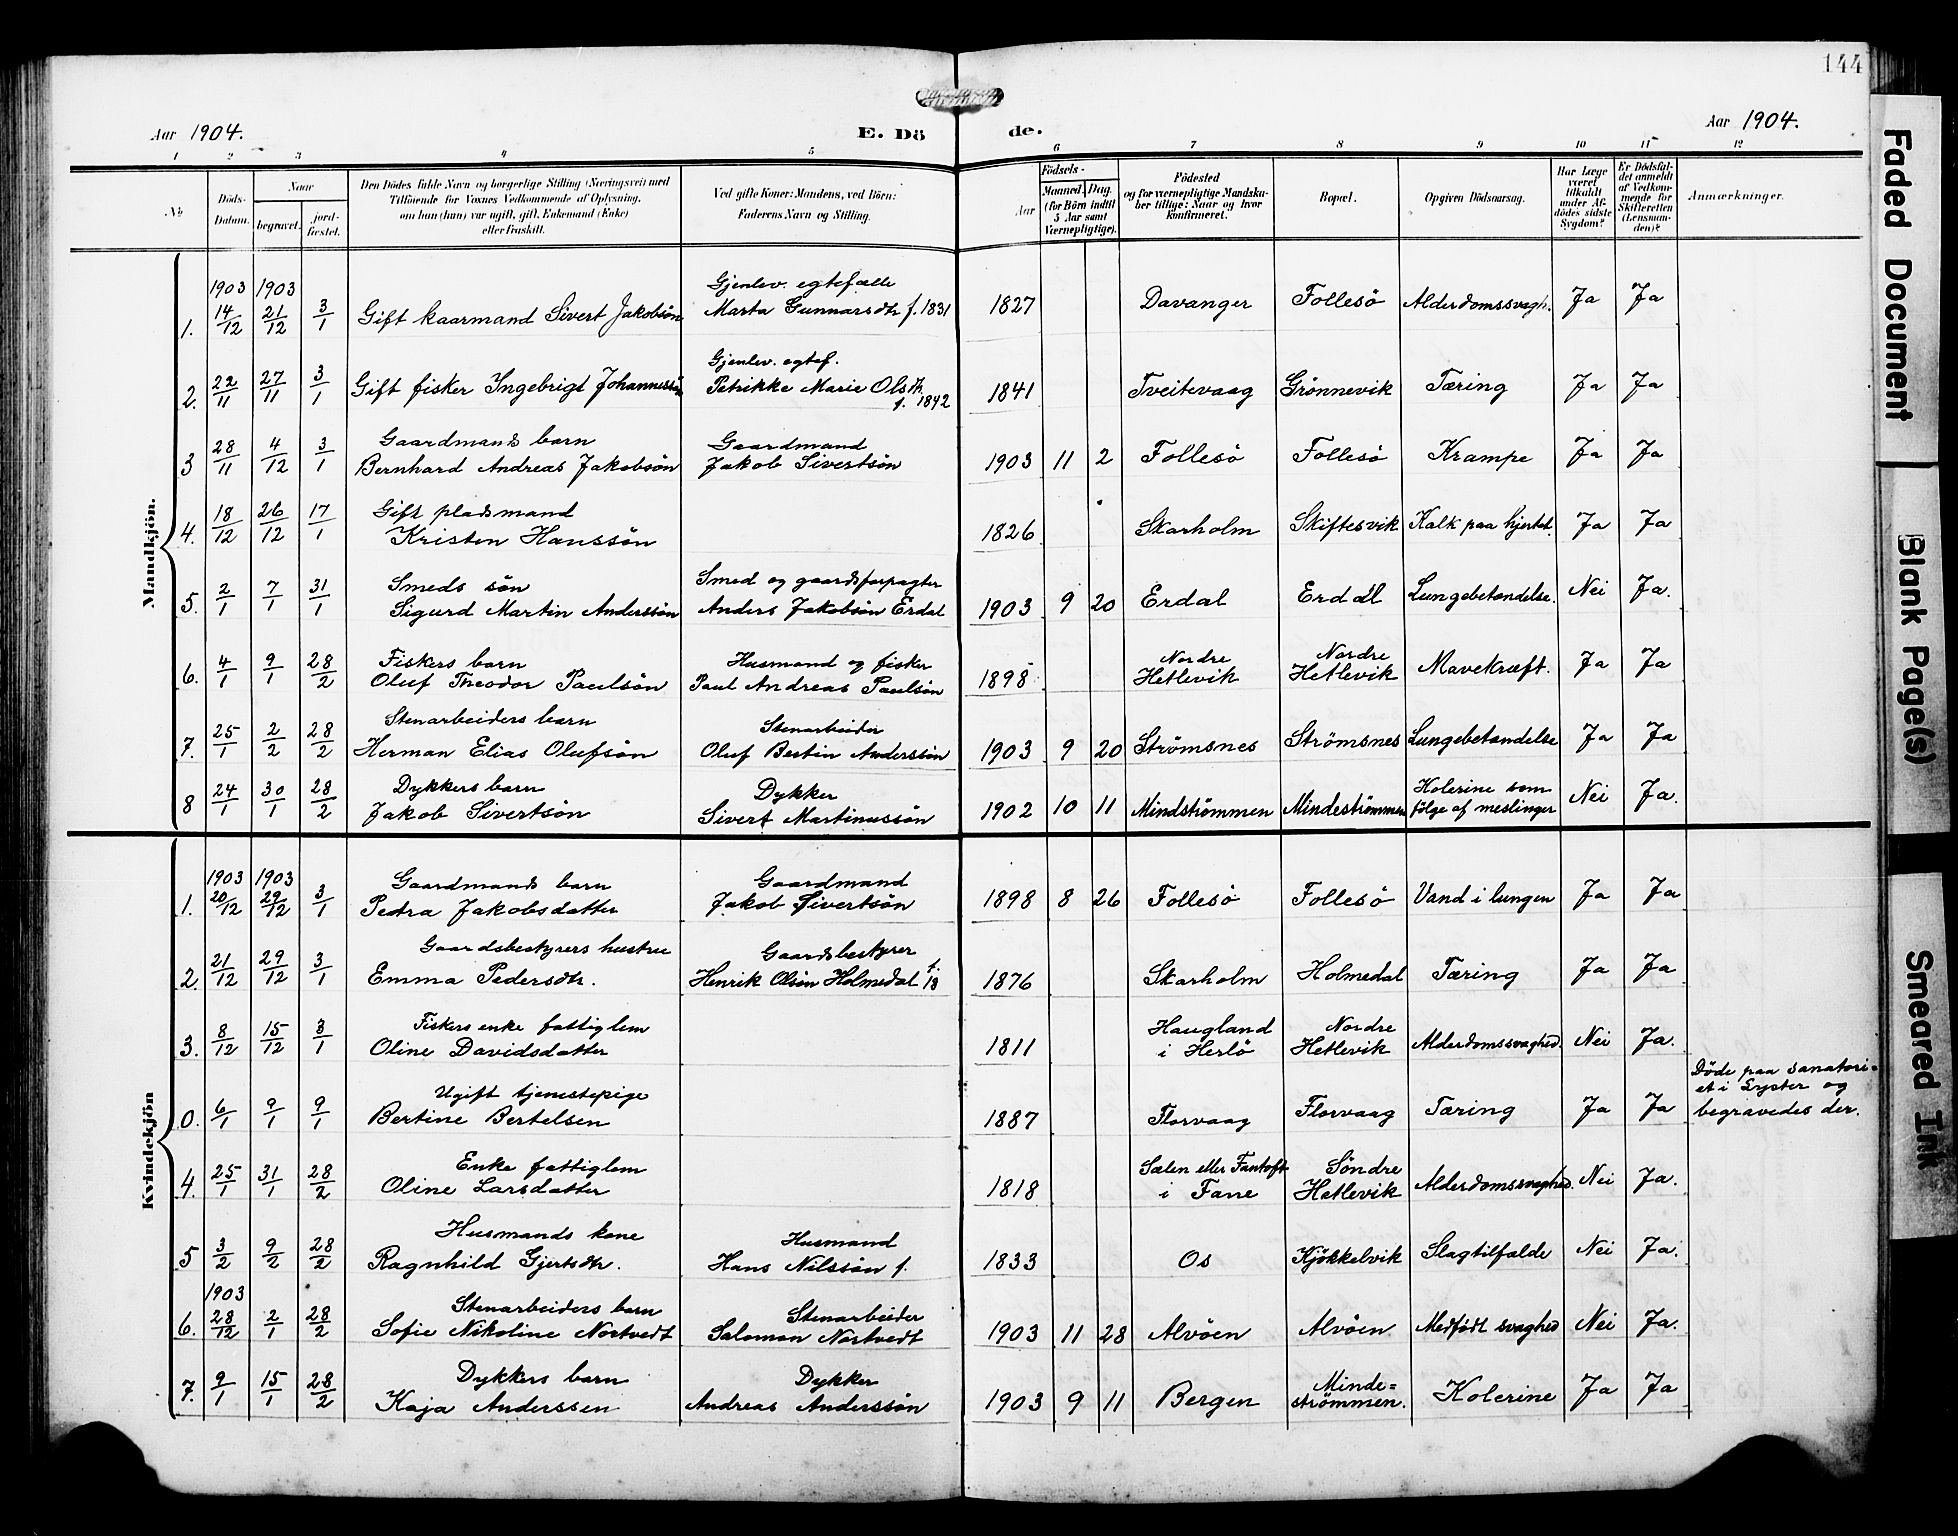 144
Aar 1904.
E. Dö
de.
Aar 1904.
1 2 3 4 5 6 7 8 9 10 11 12
No
Döds-
Datum.
Naar
begravet.
jord-
fæstet.
Den Dödes fulde Navn og borgerlige Stilling (Næringsvei) med
Tilföiende for Voxnes Vedkommende af Oplysning,
om hun (han) var ugift, gift, Enkemand (Enke)
eller fraskilt.
Ved gifte Koner: Mandens, ved Börn:
Faderens Navn og Stilling.
Födsels-
Aar
Maaned. Dag.
(for Börn indtil
5 Aar samt
Værnepligtige).
Födested
og for værnepligtige Mandska-
ber tillige: Naar og hvor
Konfirmeret.
Bopæl.
Opgiven Dödsaarsag.
Har Læge
været
tilkaldt
under Af-
dödes sidste
Sygdom?
Er Dödsfal-
det anmeldt
af Vedkom-
mende for
Skifteretten
(Lensman-
den)?
Anmærkninger.
Mandkjön.
1903 1903 Gjenlev. egtefælle
1. 14/12 21/12 3/1 Gift kaarmand Sivert Jakobsön Marta Gunnarsdtr f. 1831 1827 Davanger Follesö Alderdomssvagh. Ja Ja
Gjenlev. egtef.
2. 22/11 27/11 3/1 Gift fisker Ingebrigt Johannessön Petrikke Marie Olsdtr. 1841 Tveitevaag Grönnevik Tæring Ja Ja
f. 1842
Gaardmands barn Gaardmand
3 28/11 4/12 3/1 Bernhard Andreas Jakobsön Jakob Sivertsön 1903 11 2 Follesö Follesö Krampe Ja Ja
Gift pladsmand
4. 18/12 26/12 17/1 Kristen Hanssön 1826 Skarholm Skiftesvik Kalk paa hjertet. Ja Ja
Smeds sön Smed og gaardsforpagter
5. 2/1 7/1 31/1 Sigurd Martin Anderssön Anders Jakobsön Erdal 1903 9 20 Erdal Erdal Lungebetændelse. Nei Ja.
Fiskers barn Husmand og fisker Nordre Nordre
6. 4/1 9/1 28/2 Oluf Theodor Paulsön Paul Andreas Paulsön 1898 Hetlevik Hetlevik Mavekræft. Ja Ja
Stenarbeiders barn Stenarbeider
7. 25/1 2/2 28/2 Herman Elias Olufsön Oluf Bertin Anderssön 1903 9 20 Strömsnes Strömsnes Lungebetændelse Ja Ja
Dykkers barn Dykker Kolerine som
8 24/1 30/1 28/2 Jakob Sivertsön Sivert Martinussön 1902 10 11 Mindströmmen Mindeströmmen fölge af meslinger Nei Ja.
Kvindekjön
1903 1903 Gaardmands barn Gaardmand
1. 20/12 29/12 3/1 Petra Jakobsdatter Jakob Sivertsön 1898 8 26 Follesö Follesö Vand i lungen Ja Ja
Gaardsbestyrers hustru Gaardsbestyrer
2. 21/12 29/12 3/1 Emma Pedersdtr. Henrik Olsön Holmedal 1876 Skarholm Holmedal Tæring Ja Ja
Fiskers enke fattiglem Haugland Nordre
3. 8/12 15/12 3/1 Oline Davidsdatter 1811 i Herlö Hetlevik Alderdomssvaghed. Nei Ja.
Ugift tjenestepige Döde paa sanatori-
et i Lyster og
0. 6/1 9/1 9/1 Bertine Bertelsen 1887 Florvaag Florvaag Tæring Ja Ja begravedes der.
Enke fattiglem Sælen eller Fantoft Söndre
4. 25/1 31/1 28/2 Oline Larsdatter 1818 i Fane Hetlevik Alderdomssvaghed. Nei Ja.
Husmands kone Husmand
5 3/2 9/2 28/2 Ragnhild Gjertsdtr. Hans Nilssön f. 1833 Os Kjökkelvik Slagtilfælde Nei Ja.
1903 Stenarbeiders barn Stenarbeider
6. 28/12 2/1 28/2 Sofie Nikoline Nortvedt Salomon Nortvedt 1903 11 28 Alvöen Alvöen Medfödt svaghed Nei Ja.
Dykkers barn Dykker Minde=
7. 9/1 15/1 28/2 Kaja Anderssen Andreas Anderssön 1903 9 11 Bergen strömmen. Kolerine Ja Ja
Faded Document
Blank Page(s)
Smeared Ink